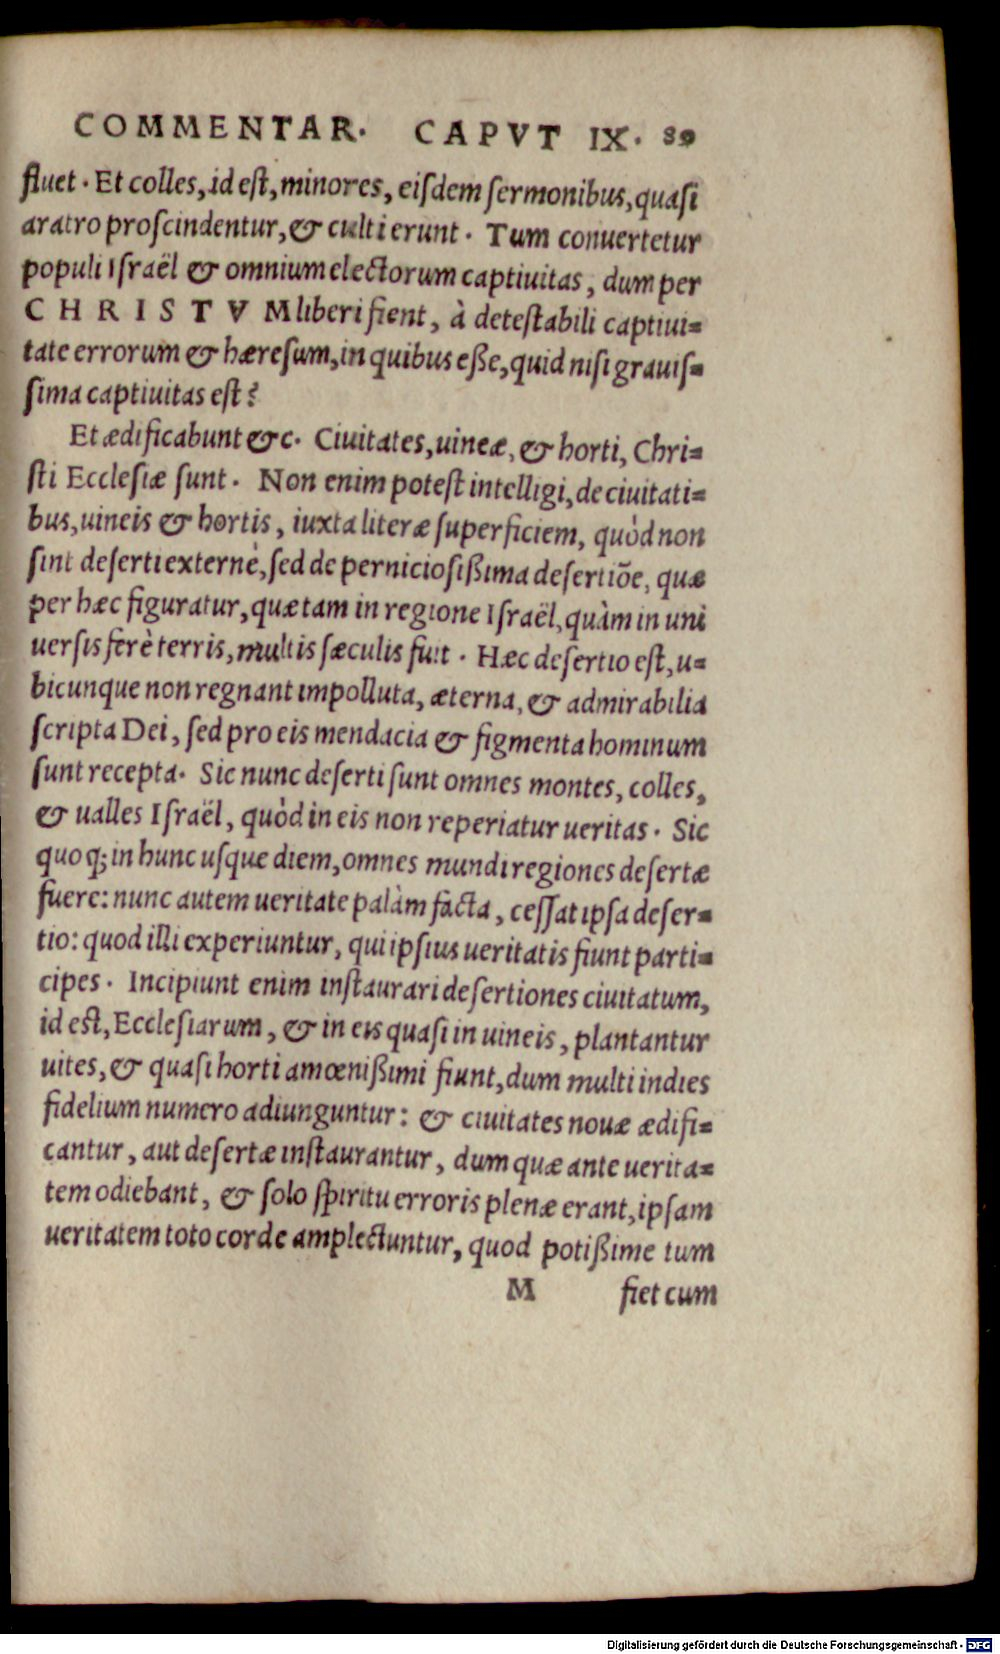 COMMENTAR. CAPVT IX. 89
fluet. Et colles, id eſt, minores, eiſdem ſermonibus, quaſi
aratro proſcindentur, & culti erunt. Tum conuertetur
populi Iſraël & omnium electorum captiuitas, dum per
CHRISTVM liberi fient, à deteſtabili captiui=
tate errorum & hæreſum, in quibus eße, quid niſi grauiſ=
ſima captiuitas eſt?
Et ædificabunt &c. Ciuitates, uineæ, & horti, Chri=
ſti Eccleſiæ ſunt. Non enim poteſt intelligi, de ciuitati=
bus, uineis & hortis, iuxta literæ ſuperficiem, quòd non
ſint deſerti externè, ſed de pernicioſißima deſertiõe, quæ
per hæc figuratur, quæ tam in regione Iſraël, quàm in uni
uerſis ferè terris, multis ſæculis fuit. Hæc deſertio eſt, u=
bicunque non regnant impolluta, æterna, & admirabilia
ſcripta Dei, ſed pro eis mendacia & figmenta hominum
ſunt recepta. Sic nunc deſerti ſunt omnes montes, colles,
& ualles Iſraël, quòd in eis non reperiatur ueritas. Sic
quoq; in hunc uſque diem, omnes mundi regiones deſertæ
fuere: nunc autem ueritate palàm facta, ceſſat ipſa deſer=
tio: quod illi experiuntur, qui ipſius ueritatis fiunt parti=
cipes. Incipiunt enim inſtaurari deſertiones ciuitatum,
id eſt, Eccleſiarum, & in eis quaſi in uineis, plantantur
uites, & quaſi horti amœnißimi fiunt, dum multi indies
fidelium numero adiunguntur: & ciuitates nouæ ædifi=
cantur, aut deſertæ inſtaurantur, dum quæ ante uerita=
tem odiebant, & ſolo ſpiritu erroris plenæ erant, ipſam
ueritatem toto corde amplectuntur, quod potißime tum
M fiet cum
Digitalisierung gefördert durch die Deutsche Forschungsgemeinschaft - DFG